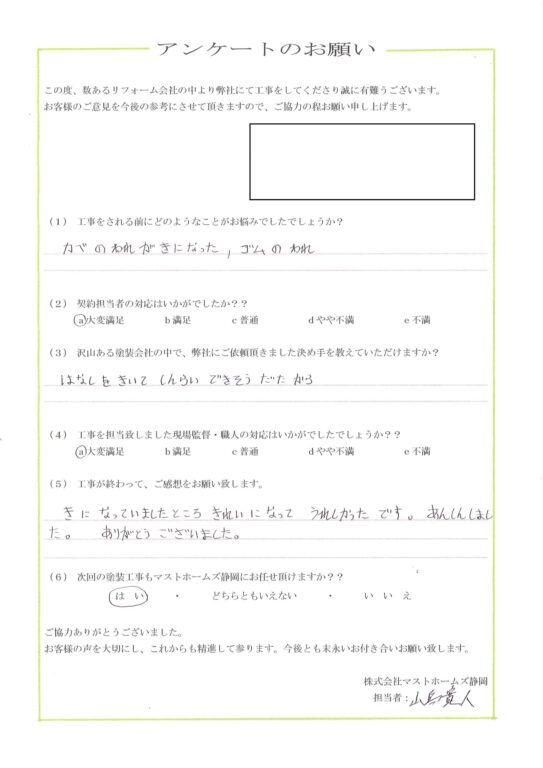 アンケートのお願い
この度、数あるリフォーム会社の中より弊社にて工事をしてくださり誠に有難うございます。
お客様のご意見を今後の参考にさせて頂きますので、ご協力の程お願い申し上げます。
(1) 工事をされる前にどのようなことがお悩みでしたでしょうか?
カベのわれがきになった, ゴムのわれ
(2) 契約担当者の対応はいかがでしたか??
a大変満足 b満足 c普通 dやや不満 e不満
(3) 沢山ある塗装会社の中で、弊社にご依頼頂きました決め手を教えていただけますか?
はなしをきいて しんらい できそう だた から
(4) 工事を担当致しました現場監督・職人の対応はいかがでしたでしょうか??
a大変満足 b満足 c普通 dやや不満 e不満
(5) 工事が終わって、ご感想をお願い致します。
きに なっていましたところ きれいになって うれしかった です。 あんしんしまし
た。 ありがとう ございました。
(6) 次回の塗装工事もマストホームズ静岡にお任せ頂けますか??
はい ・ どちらともいえない ・ いいえ
ご協力ありがとうございました。
お客様の声を大切にし、これからも精進して参ります。今後とも末永いお付き合いお願い致します。
株式会社マストホームズ静岡
担当者: